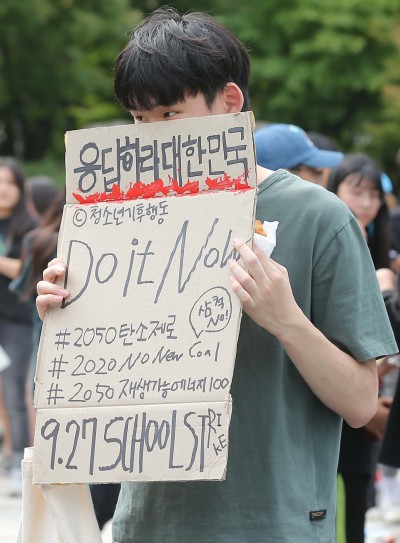 응답하라대한민국
© 청소년기후행동
Do it Now
삼척
No!
#2050탄소제로
#2020 No New Coal
#2050 재생가능에너지100
9.27 SCHOOL STRIKE